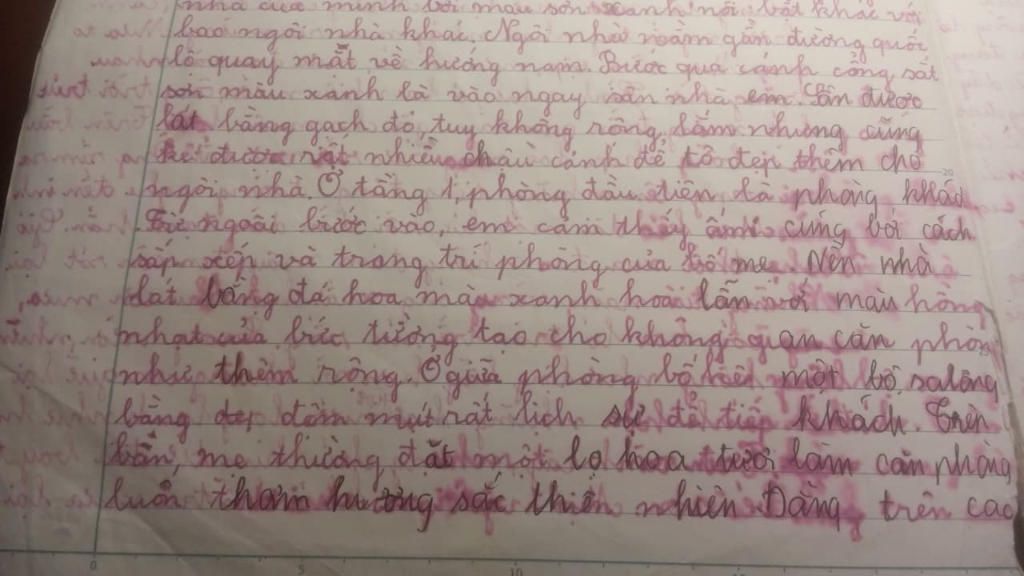 nhà của mình bởi màu sơn xanh nổi bật khác với
bao ngôi nhà khác. Ngôi nhà nằm gần đường quốc
lộ quay mặt về hướng nam. Bước qua cánh cổng sắt
sơn màu xanh là vào ngay sân nhà em. Sân được
lát bằng gạch đỏ, tuy không rộng lắm nhưng cũng
kê được rất nhiều chậu cảnh để tô đẹp thêm cho
ngôi nhà. Ở tầng 1, phòng đầu tiên là phòng khác
Từ ngoài bước vào, em cảm thấy ấm cúng bởi cách
sắp xếp và trang trí phòng của bố mẹ. Nền nhà
lát bằng đá hoa màu xanh hoài lẫn với màu hồng
nhạt của bức tường tạo cho không gian căn phòng
như thêm rộng. Ở giữa phòng bố kê một bộ salông
bằng đệm mút rất lịch sự để tiếp khách. Trên
bàn, mẹ thường đặt một lọ hoa tươi làm căn phòng
luôn thơm hương sắc thiên nhiên Đằng trên cao